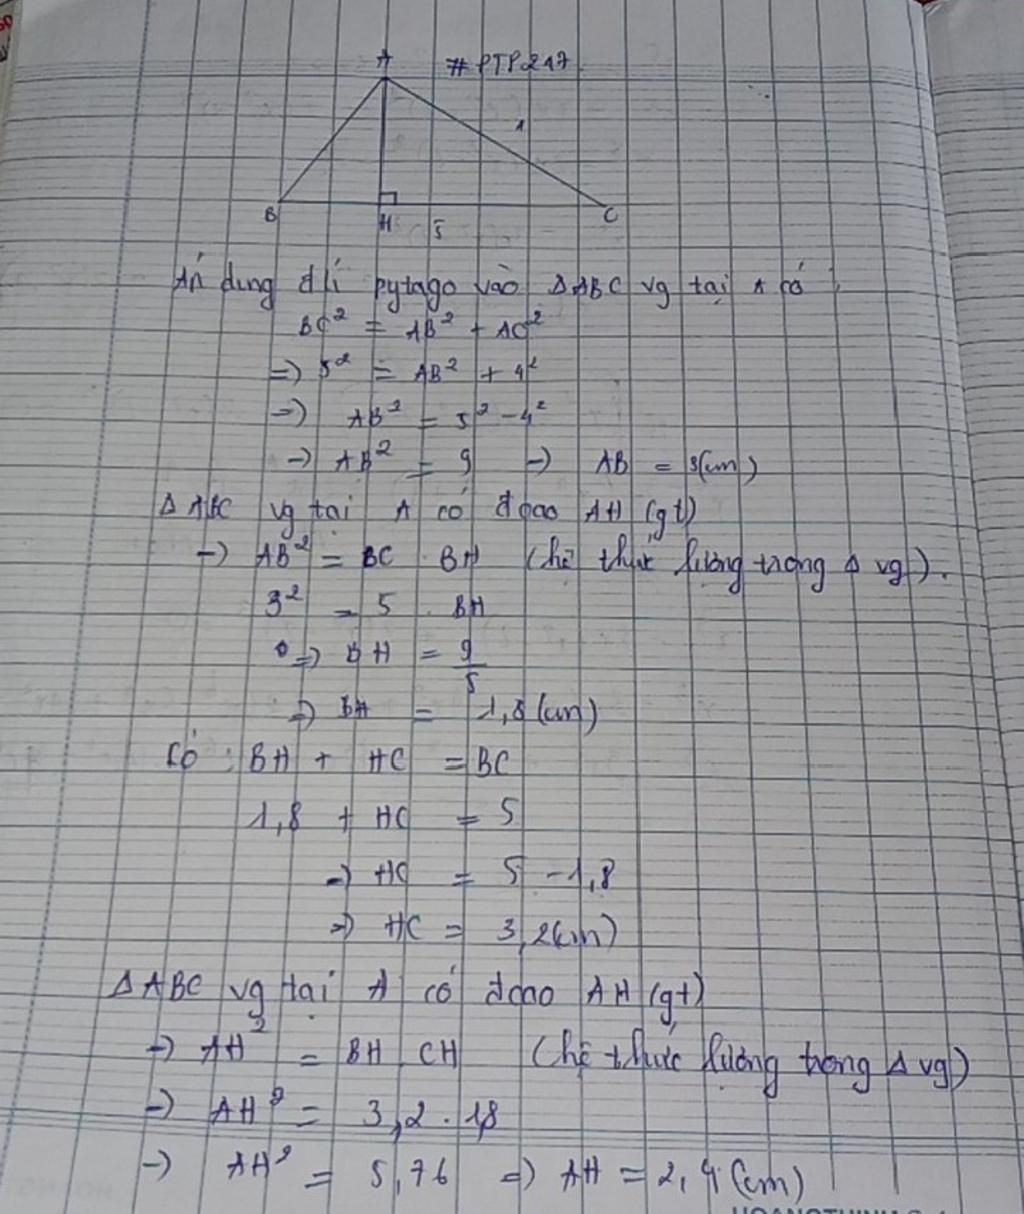 A # PTP247
4
B H 5 C
Áp dụng đ lí pytago vào ΔABC vg tại A có
BC² = AB² + AC²
=> 5² = AB² + 4²
=> AB² = 5² - 4²
=> AB² = 9 => AB = 3(cm)
Δ ABC vg tại A có đ cao AH (gt)
=> AB² = BC . BH (hệ thức lượng trong Δ vg).
3² = 5 . BH
=> BH = 9/5
=> BH = 1,8 (cm)
Có : BH + HC = BC
1,8 + HC = 5
=> HC = 5 - 1,8
=> HC = 3,2(cm)
ΔABC vg tại A có đ cao AH (gt)
=> AH² = BH . CH (hệ thức lượng trong Δ vg)
=> AH² = 3,2 . 1,8
=> AH² = 5,76 => AH = 2,4 (cm)